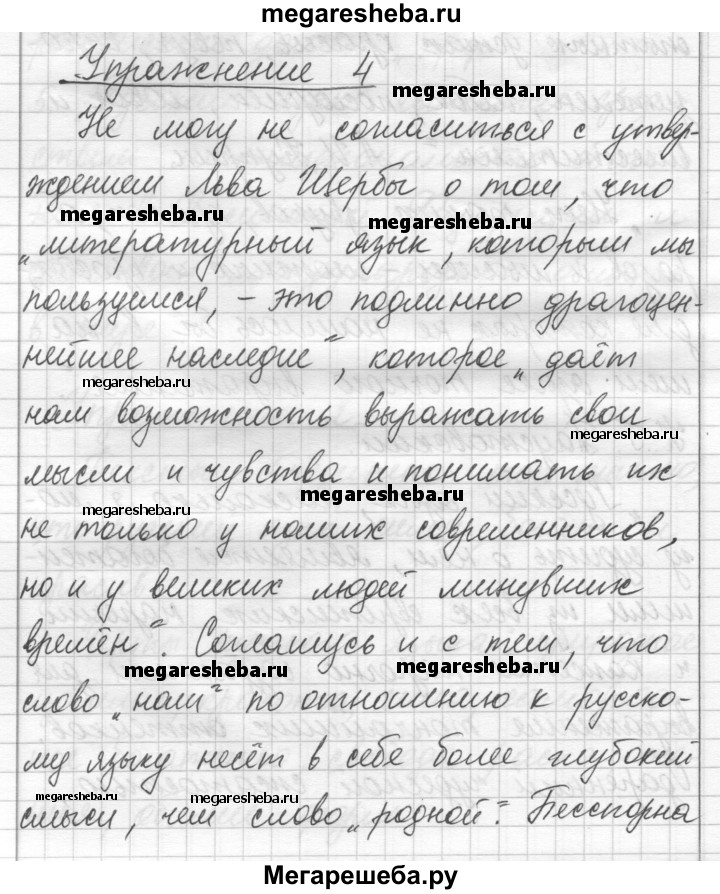 megaresheba.ru
Упражнение 4
megaresheba.ru
Не могу не согласиться с утвер-
ждением Льва Щербы о том, что
megaresheba.ru megaresheba.ru
„литературный язык, которым мы
пользуемся, – это подлинно драгоцен-
нейшее наследие“, которое „даёт
megaresheba.ru
нам возможность выражать свои
megaresheba.ru
мысли и чувства и понимать их
megaresheba.ru
megaresheba.ru
не только у наших современников,
но и у великих людей минувших
времён“. Соглашусь и с тем, что
megaresheba.ru megaresheba.ru
слово „наш“ по отношению к русско-
му языку несёт в себе более глубокий
megaresheba.ru megaresheba.ru
смысл, чем слово „родной“. Бесспорна
Мегарешеба.ру